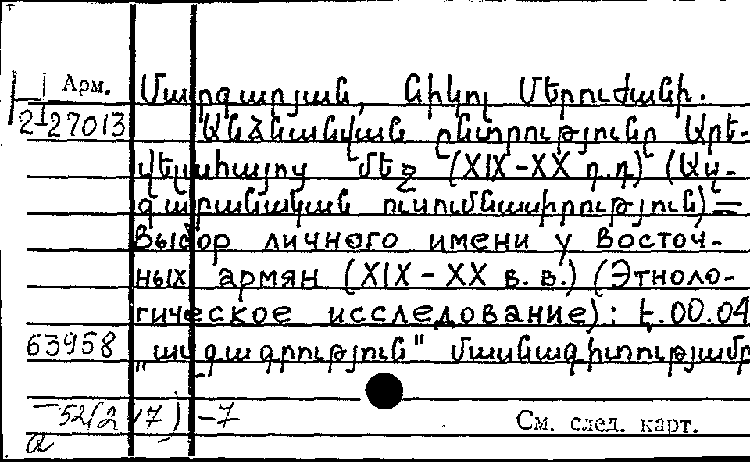 Арм. Մարգարյան, Նիկոլ Մերուժանի.
21-27013 Անձնանվան ընտրությունը Արե-
վելահայոց մեջ (XIX-XX դ.դ) (Ազ-
գաբանական ուսումնասիրություն) =
Выбор личного имени у восточ-
ных армян (XIX - XX в. в.) (Этноло-
гическое исследование): Է.00.04
63958 „ազգագրություն" մասնագիտությամբ
52(2 17) -7 См. след. карт.
а